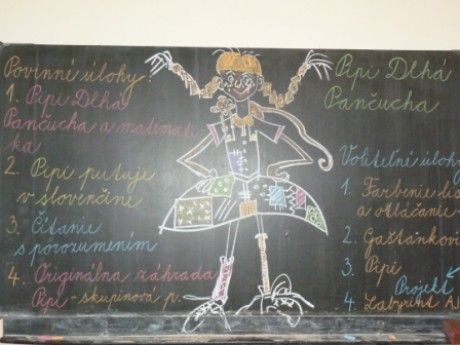 Povinné úlohy:
1. Pipi Dlhá
Pančucha a matemati
ka
2. Pipi putuje
v slovenčine
3. Čítanie
s porozumením
4. Originálna záhrada
Pipi - skupinová p.
Pipi Dlhá
Pančucha
Voliteľné úlohy
1. Farbenie
a otláčanie
2.
3. Pipi
Projekt
4. Labyrint